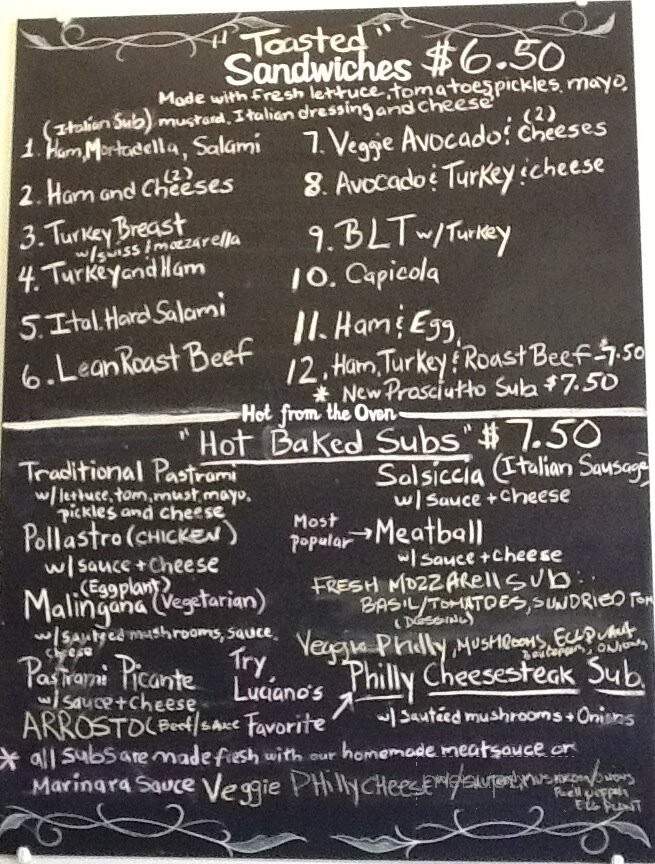 "Toasted"
Sandwiches $6.50
Made with fresh lettuce, tomatoes, pickles, mayo,
mustard, Italian dressing and cheese
(Italian Sub)
1. Ham, Mortadella, Salami
2. Ham and (2) Cheeses
3. Turkey Breast
w/swiss/mozzarella
4. Turkey and Ham
5. Ital. Hard Salami
6. Lean Roast Beef
7. Veggie Avocado & (2) Cheeses
8. Avocado & Turkey & cheese
9. BLT w/Turkey
10. Capicola
11. Ham & Egg
12. Ham, Turkey & Roast Beef -7.50
* New Prosciutto Sub $7.50
Hot from the Oven
"Hot Baked Subs" $7.50
Traditional Pastrami
w/lettuce, tom, must, mayo,
pickles and cheese
Pollastro (CHICKEN)
w/sauce + Cheese
(Eggplant)
Malingana (Vegetarian)
w/sautéed mushrooms, sauce,
cheese
Pastrami Picante
w/sauce + cheese
ARROSTO (Beef/sauce
Salsiccia (Italian Sausage)
w/sauce + cheese
Most popular → Meatball
w/sauce + cheese
FRESH MOZZARELL SUB
BASIL/TOMATOES, SUNDRIED TOM
Veggie Philly, MUSHROOMS, EGGPLANT
ONIONS
Try Luciano's Favorite
Philly Cheesesteak Sub.
w/ Sautéed mushrooms + Onions
* all subs are made fresh with our homemade meatsauce or
Marinara Sauce
Veggie PHilly CHEESE
EGGPLANT